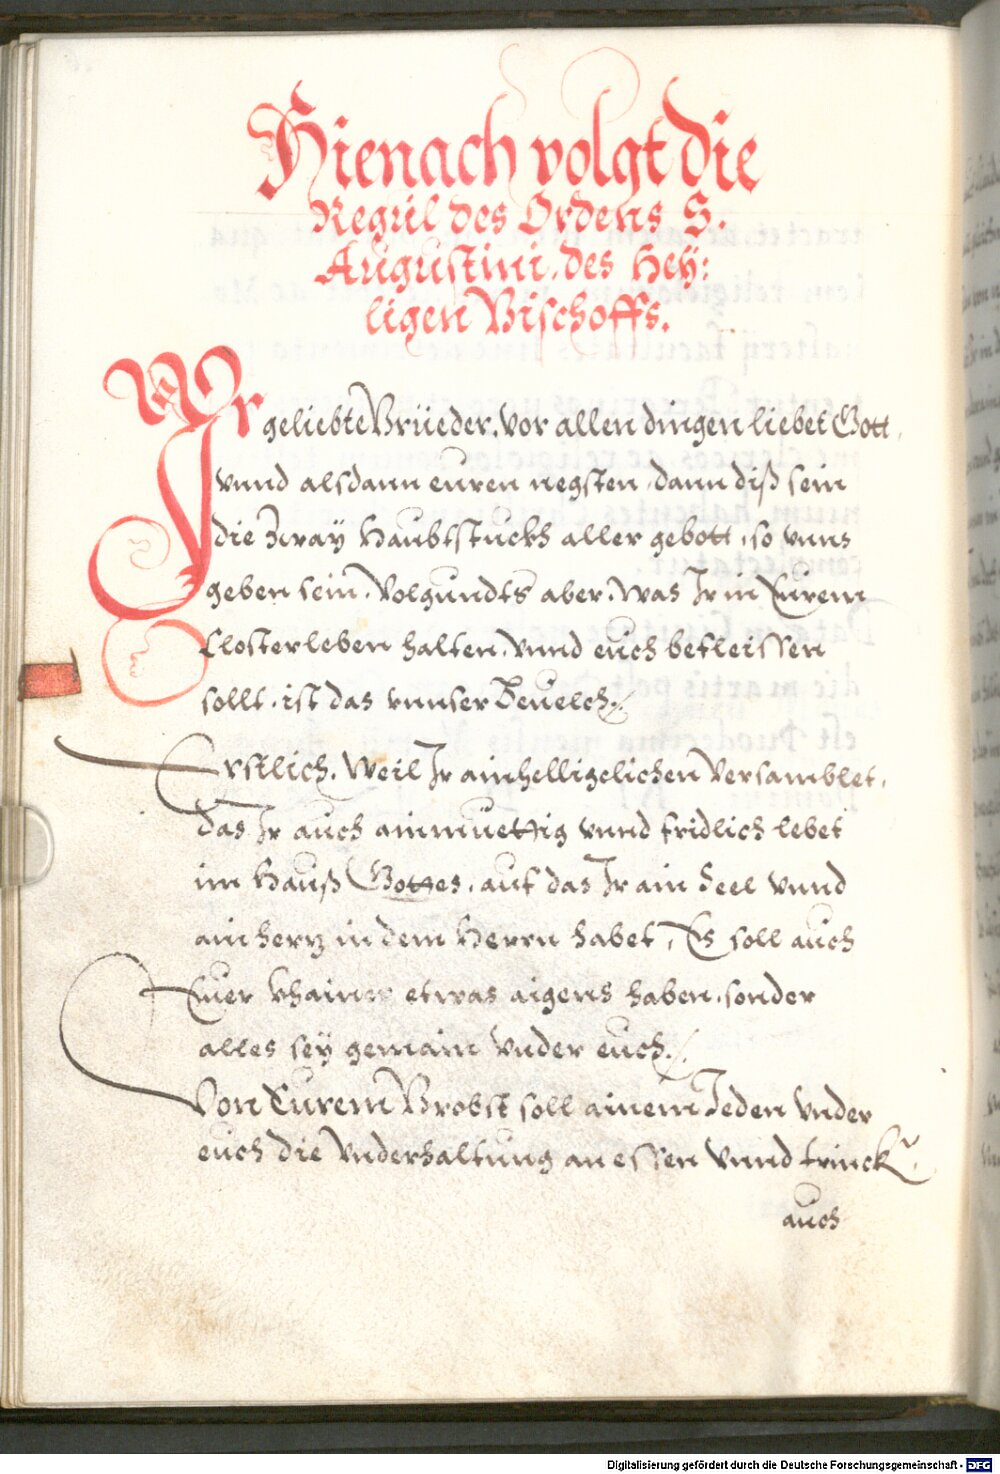 Hienach volgt die
Regul des Ordens S.
Augustini, des Hey:
ligen Bischoffs.
Ir geliebte Brüeder, vor allen dingen liebet Gott,
vnnd alsdann euren negsten, dann diß sein
die Zway Haubtstuckh aller gebott, so vnns
geben sein, Volgundts aber, was Ir in Eurem
Closterleben halten, vnnd euch befleissen
sollt, ist das vnnser Beuelch./.
Erstlich, Weil Ir ainhelligelichen versamblet,
das Ir auch ainmüettig vnnd fridlich lebet
im Hauß Gottes, auf das Ir ain Seel vnnd
ain hertz in dem Herrn habet, Es soll auch
Euer khainer etwas aigens haben, sonder
alles sey gemain vnder euch./.
Von Eurem Brobst soll ainem Jeden vnder
euch die vnderhaltung an essen vnnd trinckh,
auch
Digitalisierung gefördert durch die Deutsche Forschungsgemeinschaft - DFG